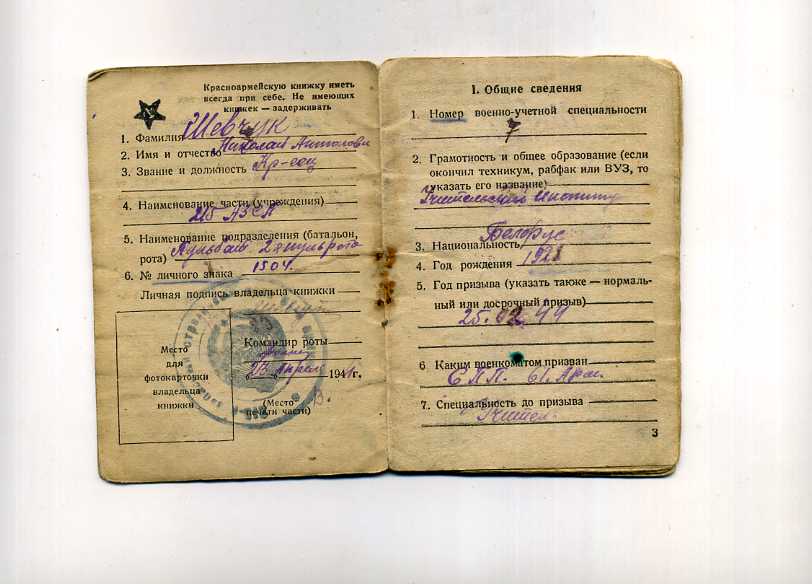 Красноармейскую книжку иметь
всегда при себе. Не имеющих
книжек — задерживать
1. Фамилия Шевчук
2. Имя и отчество Николай Антонович
3. Звание и должность Кр-ец
4. Наименование части (учреждения)
215 АЗСП
5. Наименование подразделения (батальон,
рота) Пульбат 2 пульрота
6. № личного знака 1504.
Личная подпись владельца книжки
Место
для
фотокарточки
владельца
книжки
Командир роты
23 апреля 1944 г.
(Место
печати части)
I. Общие сведения
1. Номер военно-учетной специальности
7
2. Грамотность и общее образование (если
окончил техникум, рабфак или ВУЗ, то
указать его название)
Учительский Институт
3. Национальность Белорус
4. Год рождения
5. Год призыва (указать также — нормаль-
ный или досрочный призыв)
25.02.44
6 Каким военкоматом призван
61. Арм.
7. Специальность до призыва
Учител.
3